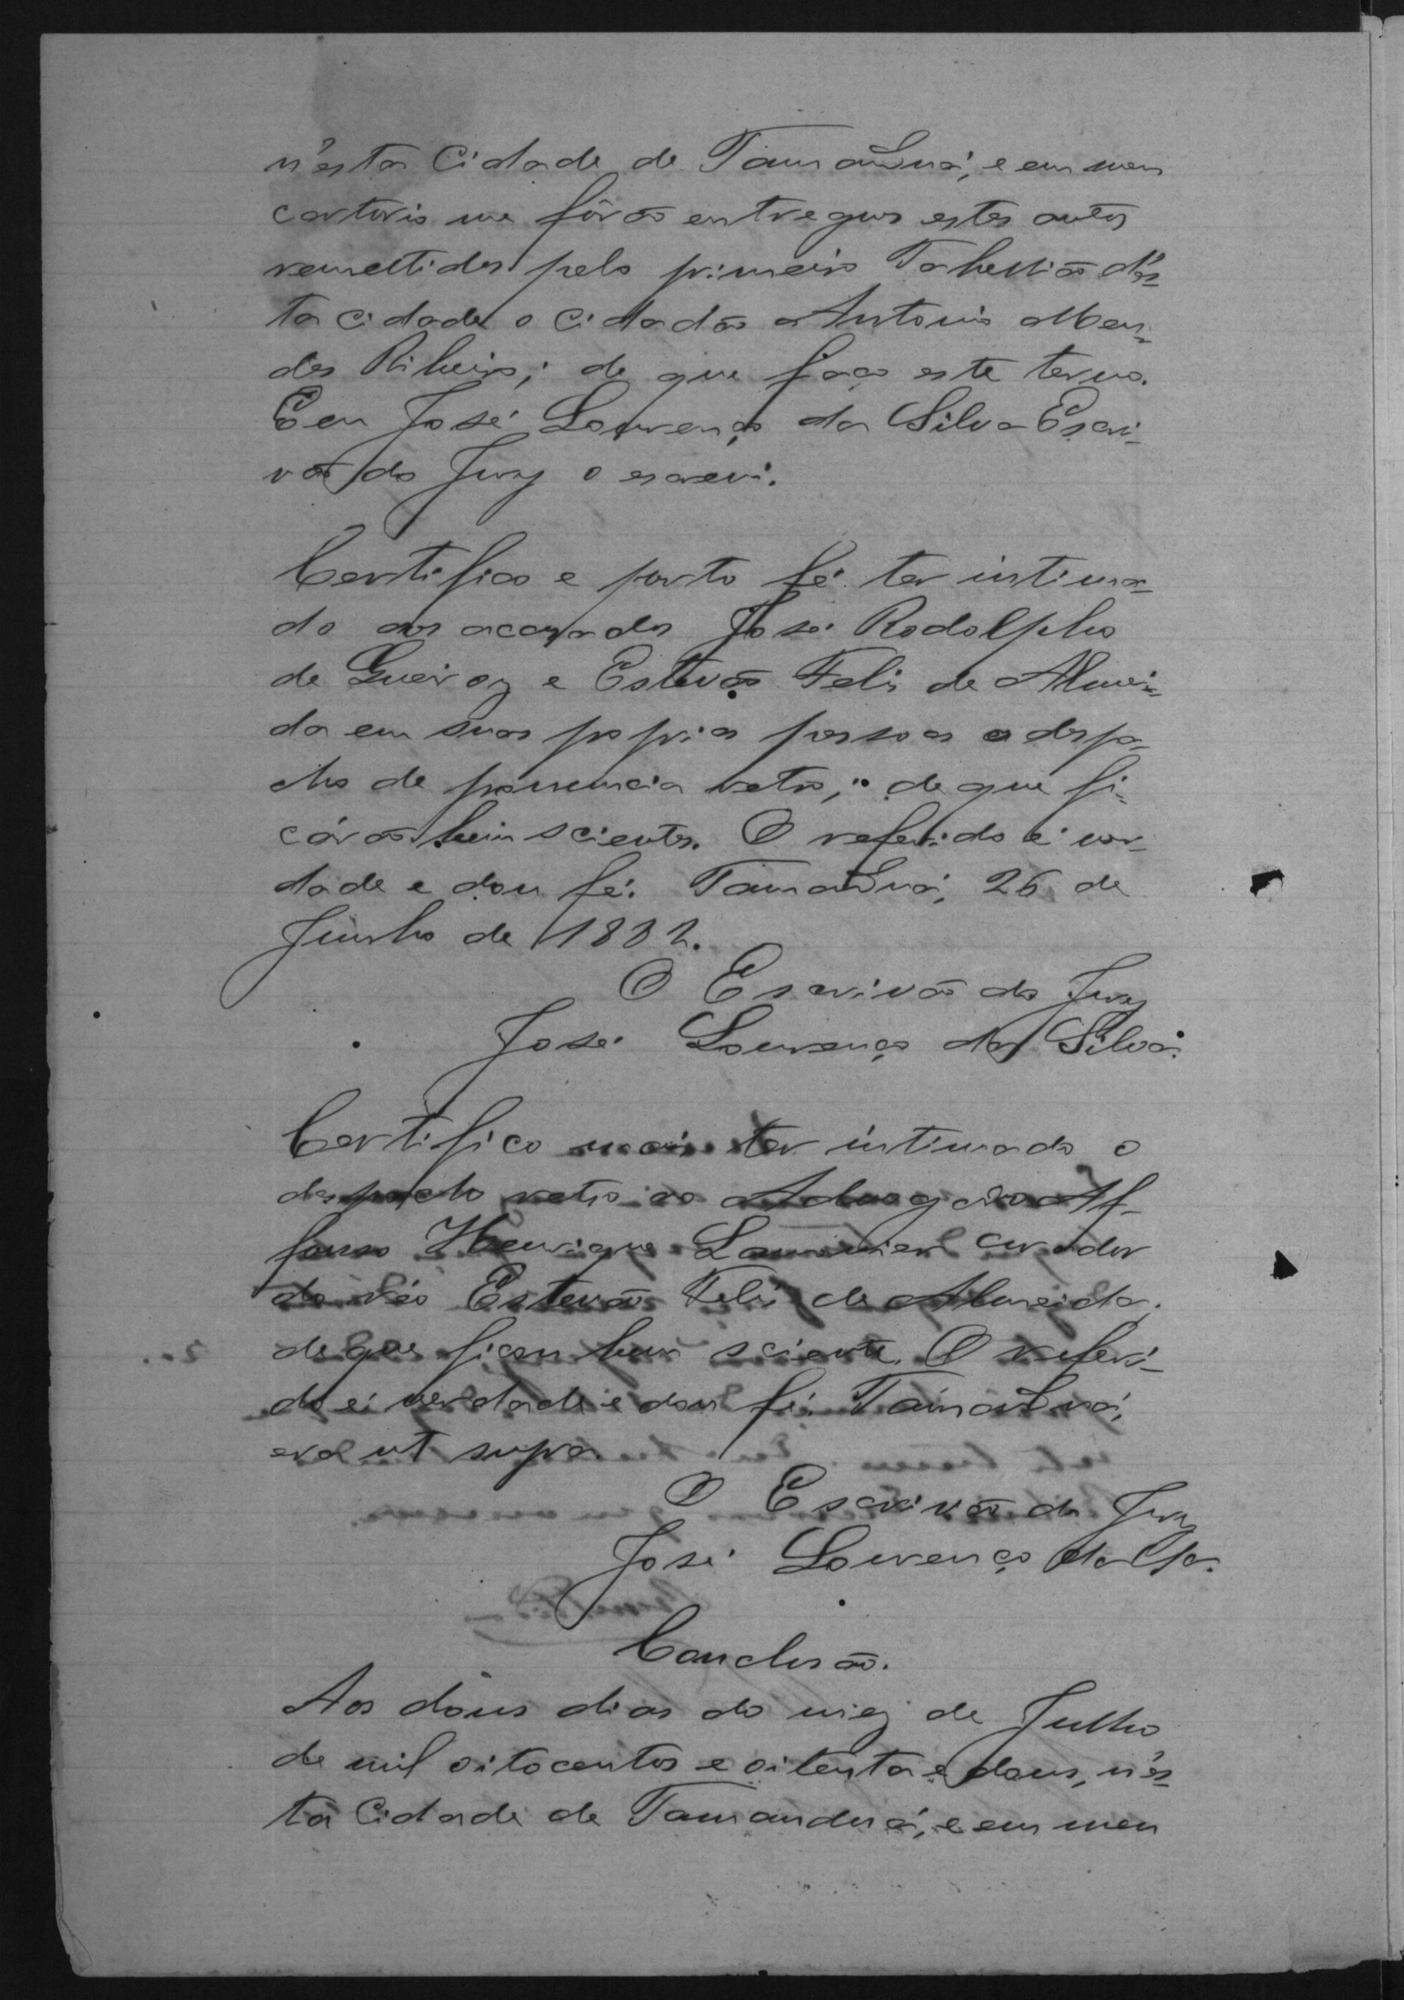 n'esta Cidade de Tamanduá, e em meu
cartorio me fôrão entregues estes autos
remettidos pelo primeiro Tabellião d'es-
ta cidade o cidadão Antonio Men-
des Ribeiro; de que faço este termo.
Eeu José Lourenço da Silva Escri-
vão do Jury o escrevi.
Certifico e porto fé ter intima-
do aos accusados José Rodolpho
de Queiroz e Estevão Felis de Almei-
da em suas proprias pessoas o despa-
cho de pronuncia retro, de que fi-
cárão bem scientes. O referido é ver-
dade e dou fé. Tamanduá, 26 de
Junho de 1882.
O Escrivão do Jury
José Lourenço da Silva.
Certifico mais ter intimado o
despacho retro ao Advogado Af-
fonso Henrique Lamounier curador
do réo Estevão Felis de Almeida,
de que ficou bem sciente. O referi-
do é verdade e dou fé. Tamanduá,
era ut supra.
O Escrivão do Jury
José Lourenço da Sa.
Conclusão.
Aos dous dias do mez de Julho
de mil oitocentos e oitenta e dous, n'es-
ta Cidade de Tamanduá, e em meu